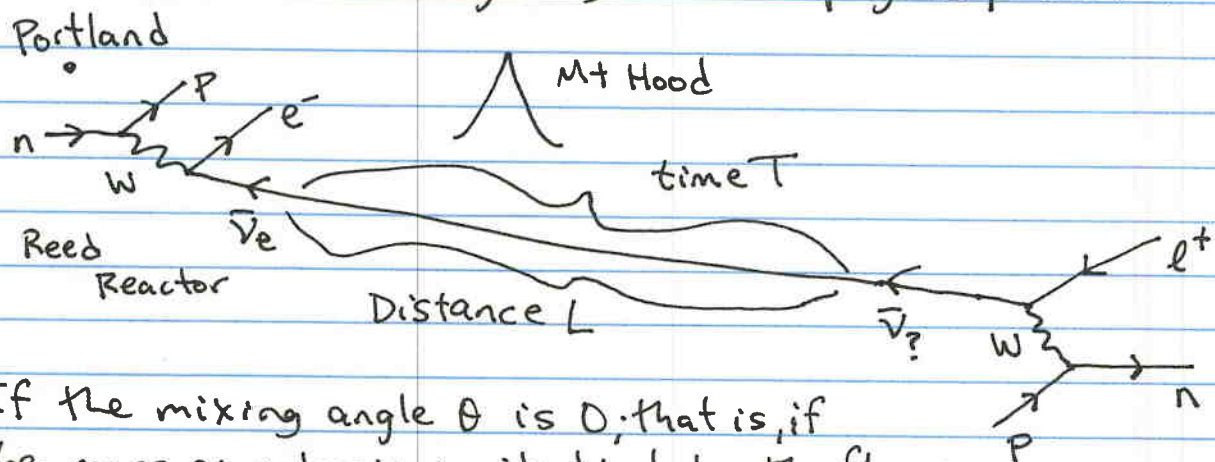 Portland
Mt Hood
p
e⁻
n
W
time T
ν̄e
Reed
Reactor
Distance L
ν̄?
l⁺
W
n
p
If the mixing angle θ is 0, that is, if